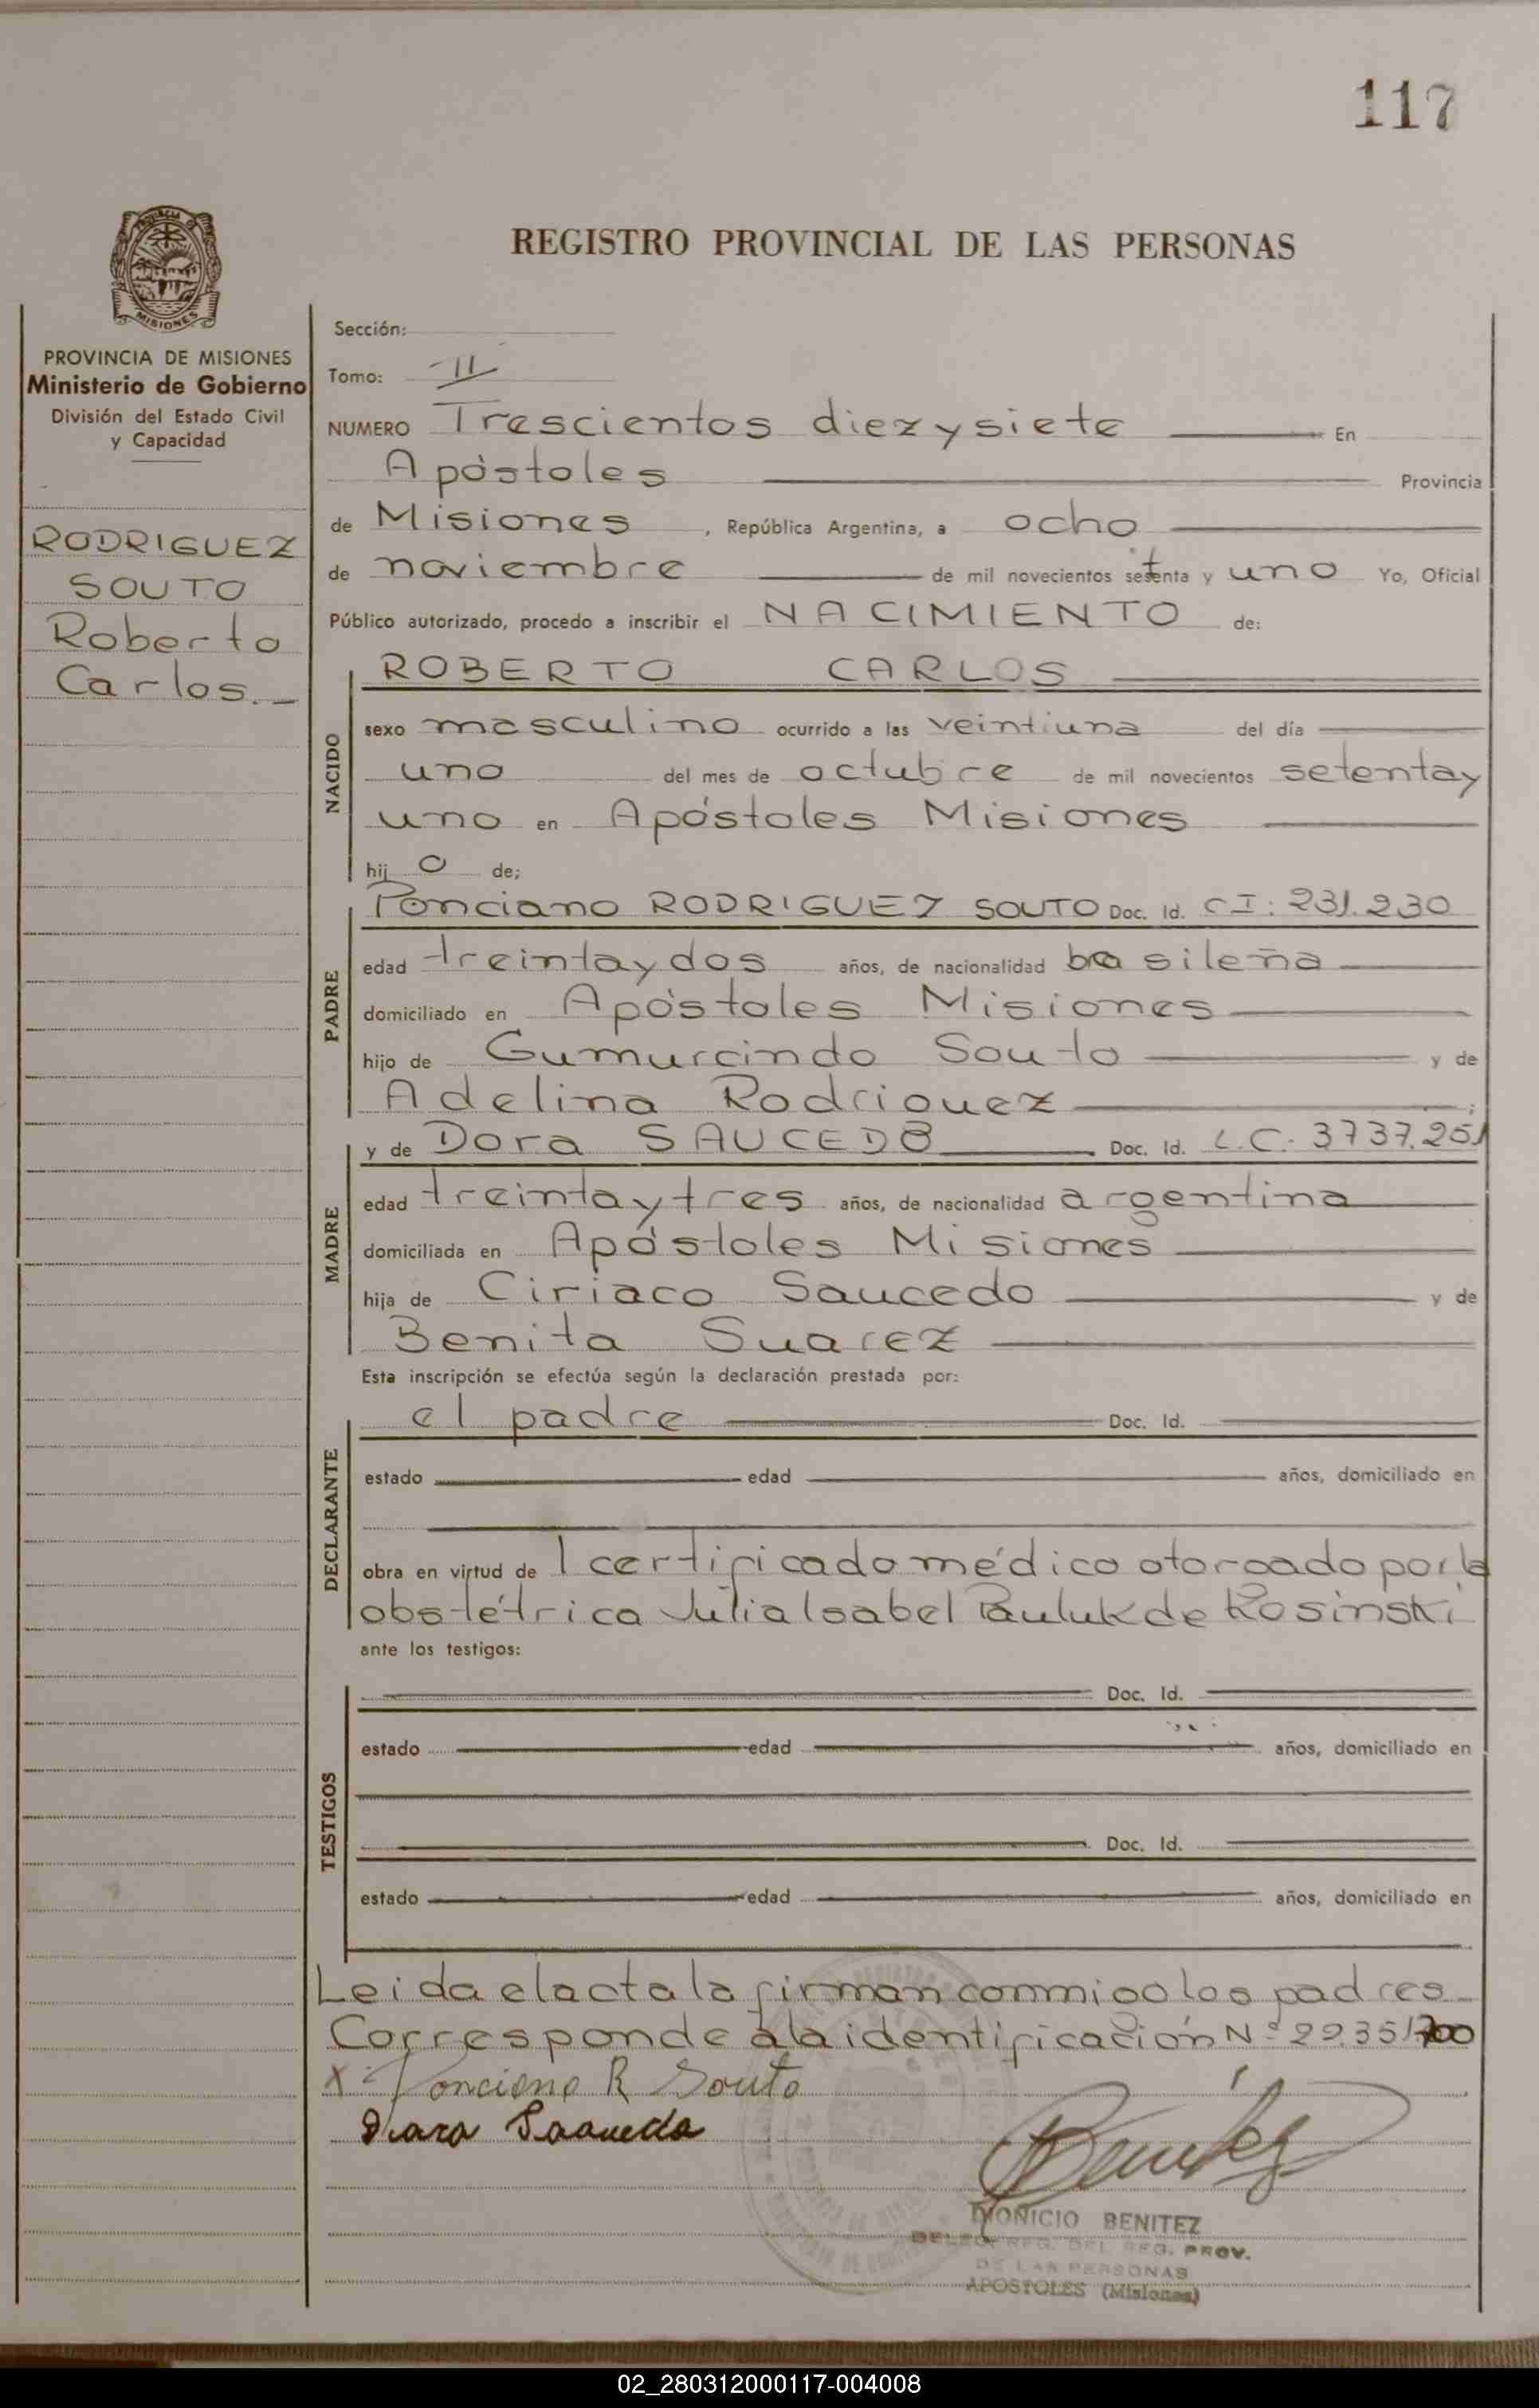 117
REGISTRO PROVINCIAL DE LAS PERSONAS
MISIONES
PROVINCIA DE MISIONES
Ministerio de Gobierno
División del Estado Civil
y Capacidad
RODRIGUEZ
SOUTO
Roberto
Carlos.-
Sección:
Tomo: II
NUMERO Trescientos diezysiete En
Apóstoles Provincia
de Misiones, República Argentina, a ocho
de noviembre de mil novecientos setenta y uno Yo, Oficial
Público autorizado, procedo a inscribir el NACIMIENTO de:
ROBERTO CARLOS
NACIDO
sexo masculino ocurrido a las veintiuna del día
uno del mes de octubre de mil novecientos setentay
uno en Apóstoles Misiones
hijo de;
PADRE
Ponciano RODRIGUEZ SOUTO Doc. Id. CI: 231.230
edad treintaydos años, de nacionalidad brasileña
domiciliado en Apóstoles Misiones
hijo de Gumurcindo Souto y de
Adelina Rodriguez;
MADRE
y de Dora SAUCEDO Doc. Id. L.C. 3737.251
edad treintaytres años, de nacionalidad argentina
domiciliada en Apóstoles Misiones
hija de Ciriaco Saucedo y de
Benita Suarez
Esta inscripción se efectúa según la declaración prestada por:
DECLARANTE
el padre Doc. Id.
estado edad años, domiciliado en
obra en virtud de 1 certificado médico otorgado por la
obstétrica Julia Isabel Pauluk de Kosinski
ante los testigos:
TESTIGOS
Doc. Id.
estado edad años, domiciliado en
Doc. Id.
estado edad años, domiciliado en
Leida el acta la firman conmigo los padres
Corresponde a la identificación Nº 22.351.700
X Ponciano R Souto
Benitez
DIONICIO BENITEZ
REG. PROV.
DE LAS PERSONAS
APOSTOLES (Misiones)
02_280312000117-004008